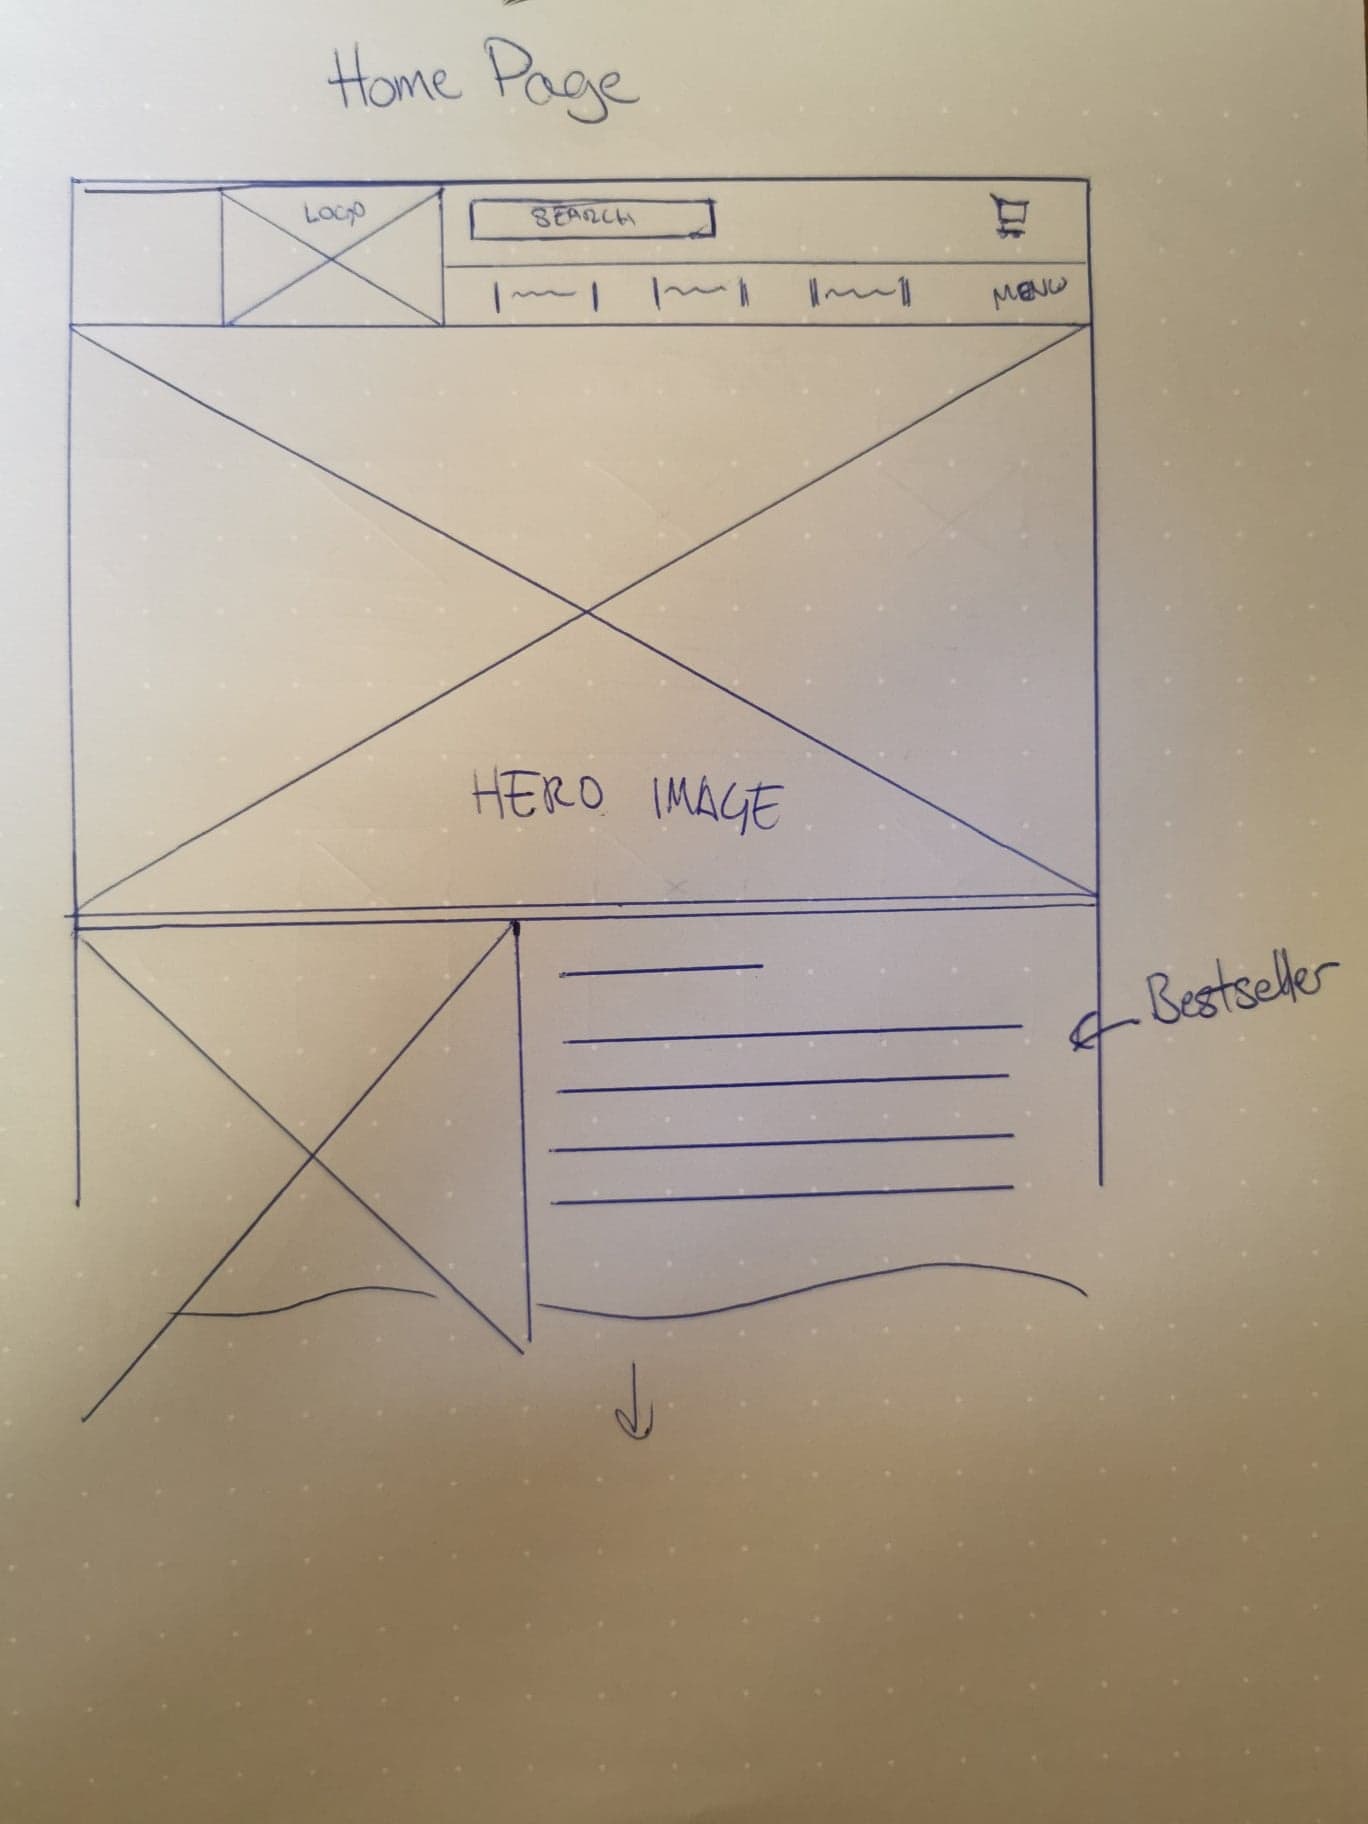 Home Page
LOGO
SEARCH
MENU
HERO IMAGE
Bestseller